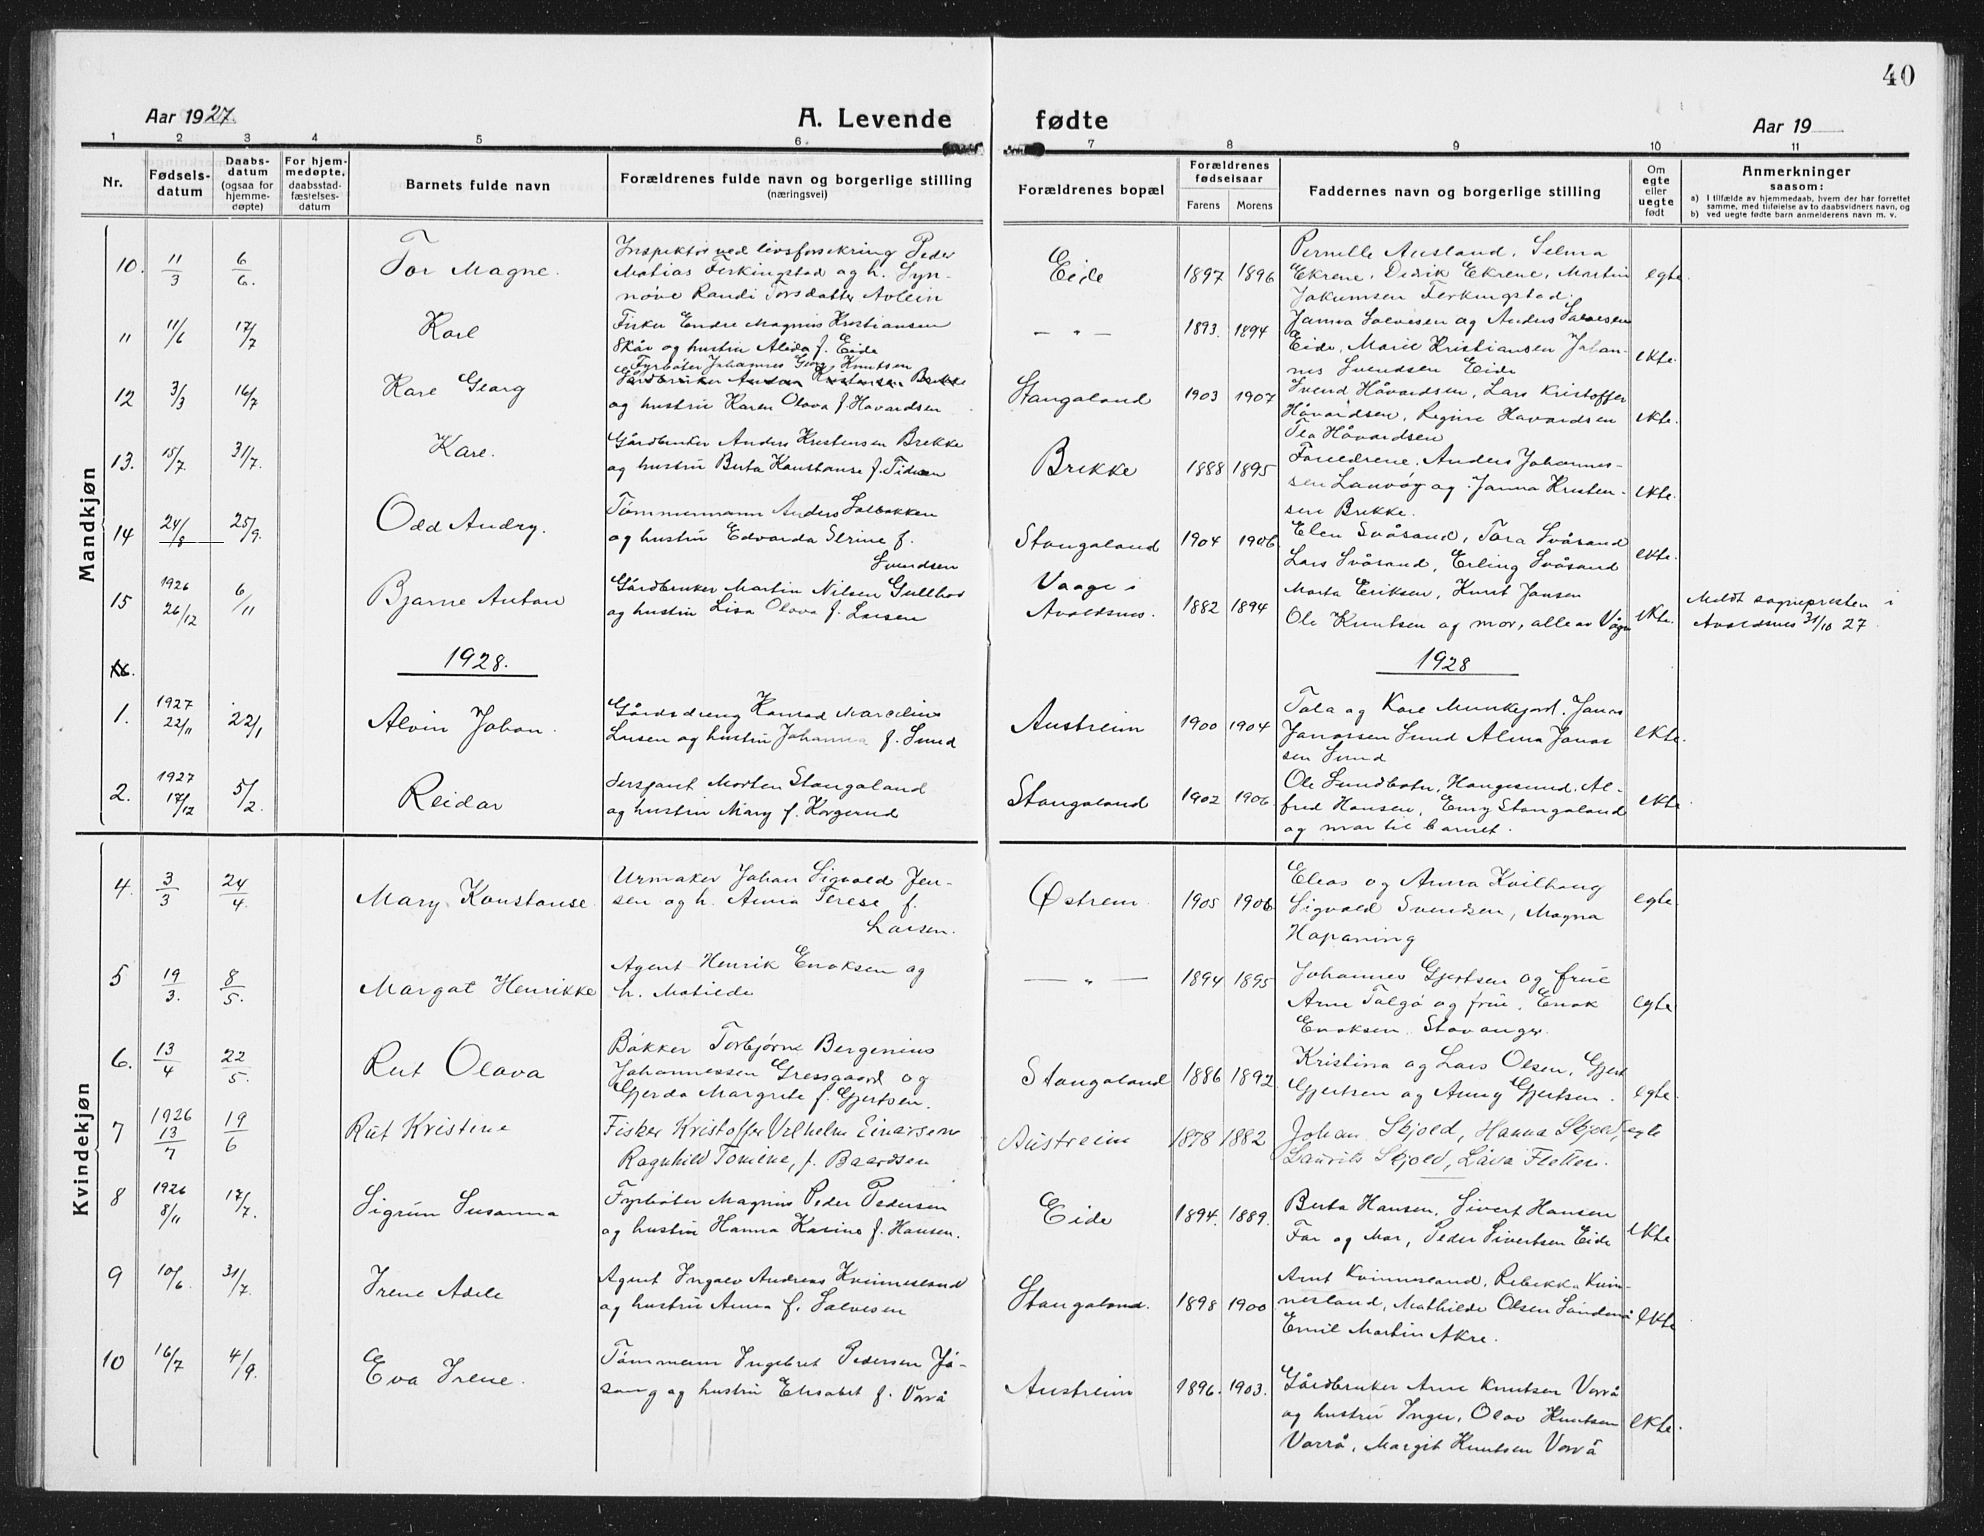 40
Aar 1927. A. Levende fødte Aar 19
1 2 3 4 5 6 7 8 9 10 11
Nr. Fødsels-datum Daabs-datum (ogsaa for hjemme-døpte) For hjem-medøpte, daabsstad-fæstelses-datum Barnets fulde navn Forældrenes fulde navn og borgerlige stilling (næringsvei) Forældrenes bopæl Forældrenes fødselsaar Farens Morens Faddernes navn og borgerlige stilling Om egte eller uegte født Anmerkninger saasom:
a) I tilfælde av hjemmedaab, hvem der har forrettet samme, med tilføielse av to daabsvidners navn, og
b) ved uegte fødte barn anmelderens navn m. v.
Mandkjøn
10. 11/3 6/6. Tor Magne. Inspektør ved livsforsikring Peder Eide 1897 1896 Pernille Ausland, Selma egte.
Matias Ferkingstad og h. Syn- Ekrene, Didrik Ekrene, Martin
növe Randi Torsdatter Jakumsen Ferkingstad.
11 11/6 17/7 Karl Fisker Endre Magnus Kristiansen — " — 1893. 1894 Salvesen og Anders Salvesen ekte.
Skår og hustru Alida f. Eide Eide, Marie Kristiansen Johan-
nes Svendsen Eide
12 3/3 16/7 Kåre Georg Fyrbøter Johannes Georg Knutsen Stangaland 1903 1907 Svend Håvardsen, Lars Kristoffer ekte.
Gårdbruker Brekke
og hustru Karen Olava f. Håvardsen Håvardsen, Regine Havardsen
Tea Håvardsen
13. 15/7 31/7. Kåre. Gårdbruker Anders Kristensen Brekke Brekke 1888 1895 Foreldrene. Anders Johannes- ekte.
og hustru Berta Konstanse f. sen og Janna Kristen-
sen Brekke.
14 24/8 25/9. Odd Andry. Tömmermann Anders Solbakken Stangaland 1904 1906 Elen Svåsand, Tora Svåsand ekte.
og hustru Edvarda f. Lars Svåsand, Erling Svåsand
Svendsen
15 1926 26/12 6/11 Bjarne Anton Gårdbruker Martin Nilsen Gullhov Vaage i 1882 1894 Marta Eriksen, Knut Jansen ekte. Meldt sogneprresten i
og hustru Lisa Olava f. Larsen Avaldsnes. Ole Knutsen og mor, alle av Våge Avaldsnes 31/10 27.
16. 1928. 1928
1. 1927 22/11 22/1 Alvin Johan. Gårdsdreng Konrad Marcelius Austreim 1900 1904 Tala og Kåre Munkejord. Jonas ekte.
Larsen og hustru Johanna f. Sund Janassen Sund Alma Jonas
sen Sund
2. 1927 17/12 5/2. Reidar Sersjant Morten Stangaland Stangaland 1902 1906 Ole Sundbotn, Haugesund, Al- ekte.
og hustru Mary f. Korgerud fred Hansen, Emy Stangaland
og mor til barnet.
Kvindekjøn
4. 3/3 24/4. Mary Konstanse. Urmaker Johan Sigvald Jen- Østrem. 1905 1906 Elias og Anna Kvilhaug egte.
sen og h. Anna Terese f. Sigvald Svendsen, Magna
Larsen. Hapaning
5 19/3. 8/5. Margot Henrikke Agent Henrik Enoksen og — " — 1894 1895 Johannes Gjertsen og frue egte
h. Matilde Arne Talgø og frue, Enok
Enoksen. Stavanger.
6. 13/4 22/5. Rut Olava Bakker Torbjørn Bergenius Stangaland 1886 1892 Kristina og Lars Olsen, Gjert egte.
Johannessen Gressgaard og Gjertsen og Anny Gjertsen.
Gjerda Margrete f. Gjertsen.
7 1926 13/7 19/6 Rut Kristine Fisker Kristoffer Vilhelm Einarsen Austreim 1878 1882 Johan Skjold, Hanna Skjold, egte
Ragnhild Tomine, f. Baardsen Laurits Skjold, Låva Fletten.
8 1926 8/11 17/7. Sigrun Susanna Fyrbøter Magnus Peder Pedersen Eide 1894. 1889. Berta Hansen, Sivert Hansen ekte
og hustru Hanna Karine f. Hansen. Far og Mor, Peder Sivertsen Eide
9 10/6. 31/7. Irene Adele Agent Ingolv Andreas Kvinnesland Stangaland. 1898 1900 Arnt Kvinnesland, Rebekka Kvin- ekte
og hustru Anna f. Salvesen nesland, Mathilde Olsen
Emil Martin Akre.
10 16/7 4/9. Eva Irene. Tömmerm Ingebret Pedersen Jö- Austreim 1896. 1903. Gårdbruker Arne Knutsen Vorrå ekte.
sang og hustru Elisabet f. Vorrå og hustru Inger, Olav Knutsen
Vorrå, Margit Knutsen Vorrå